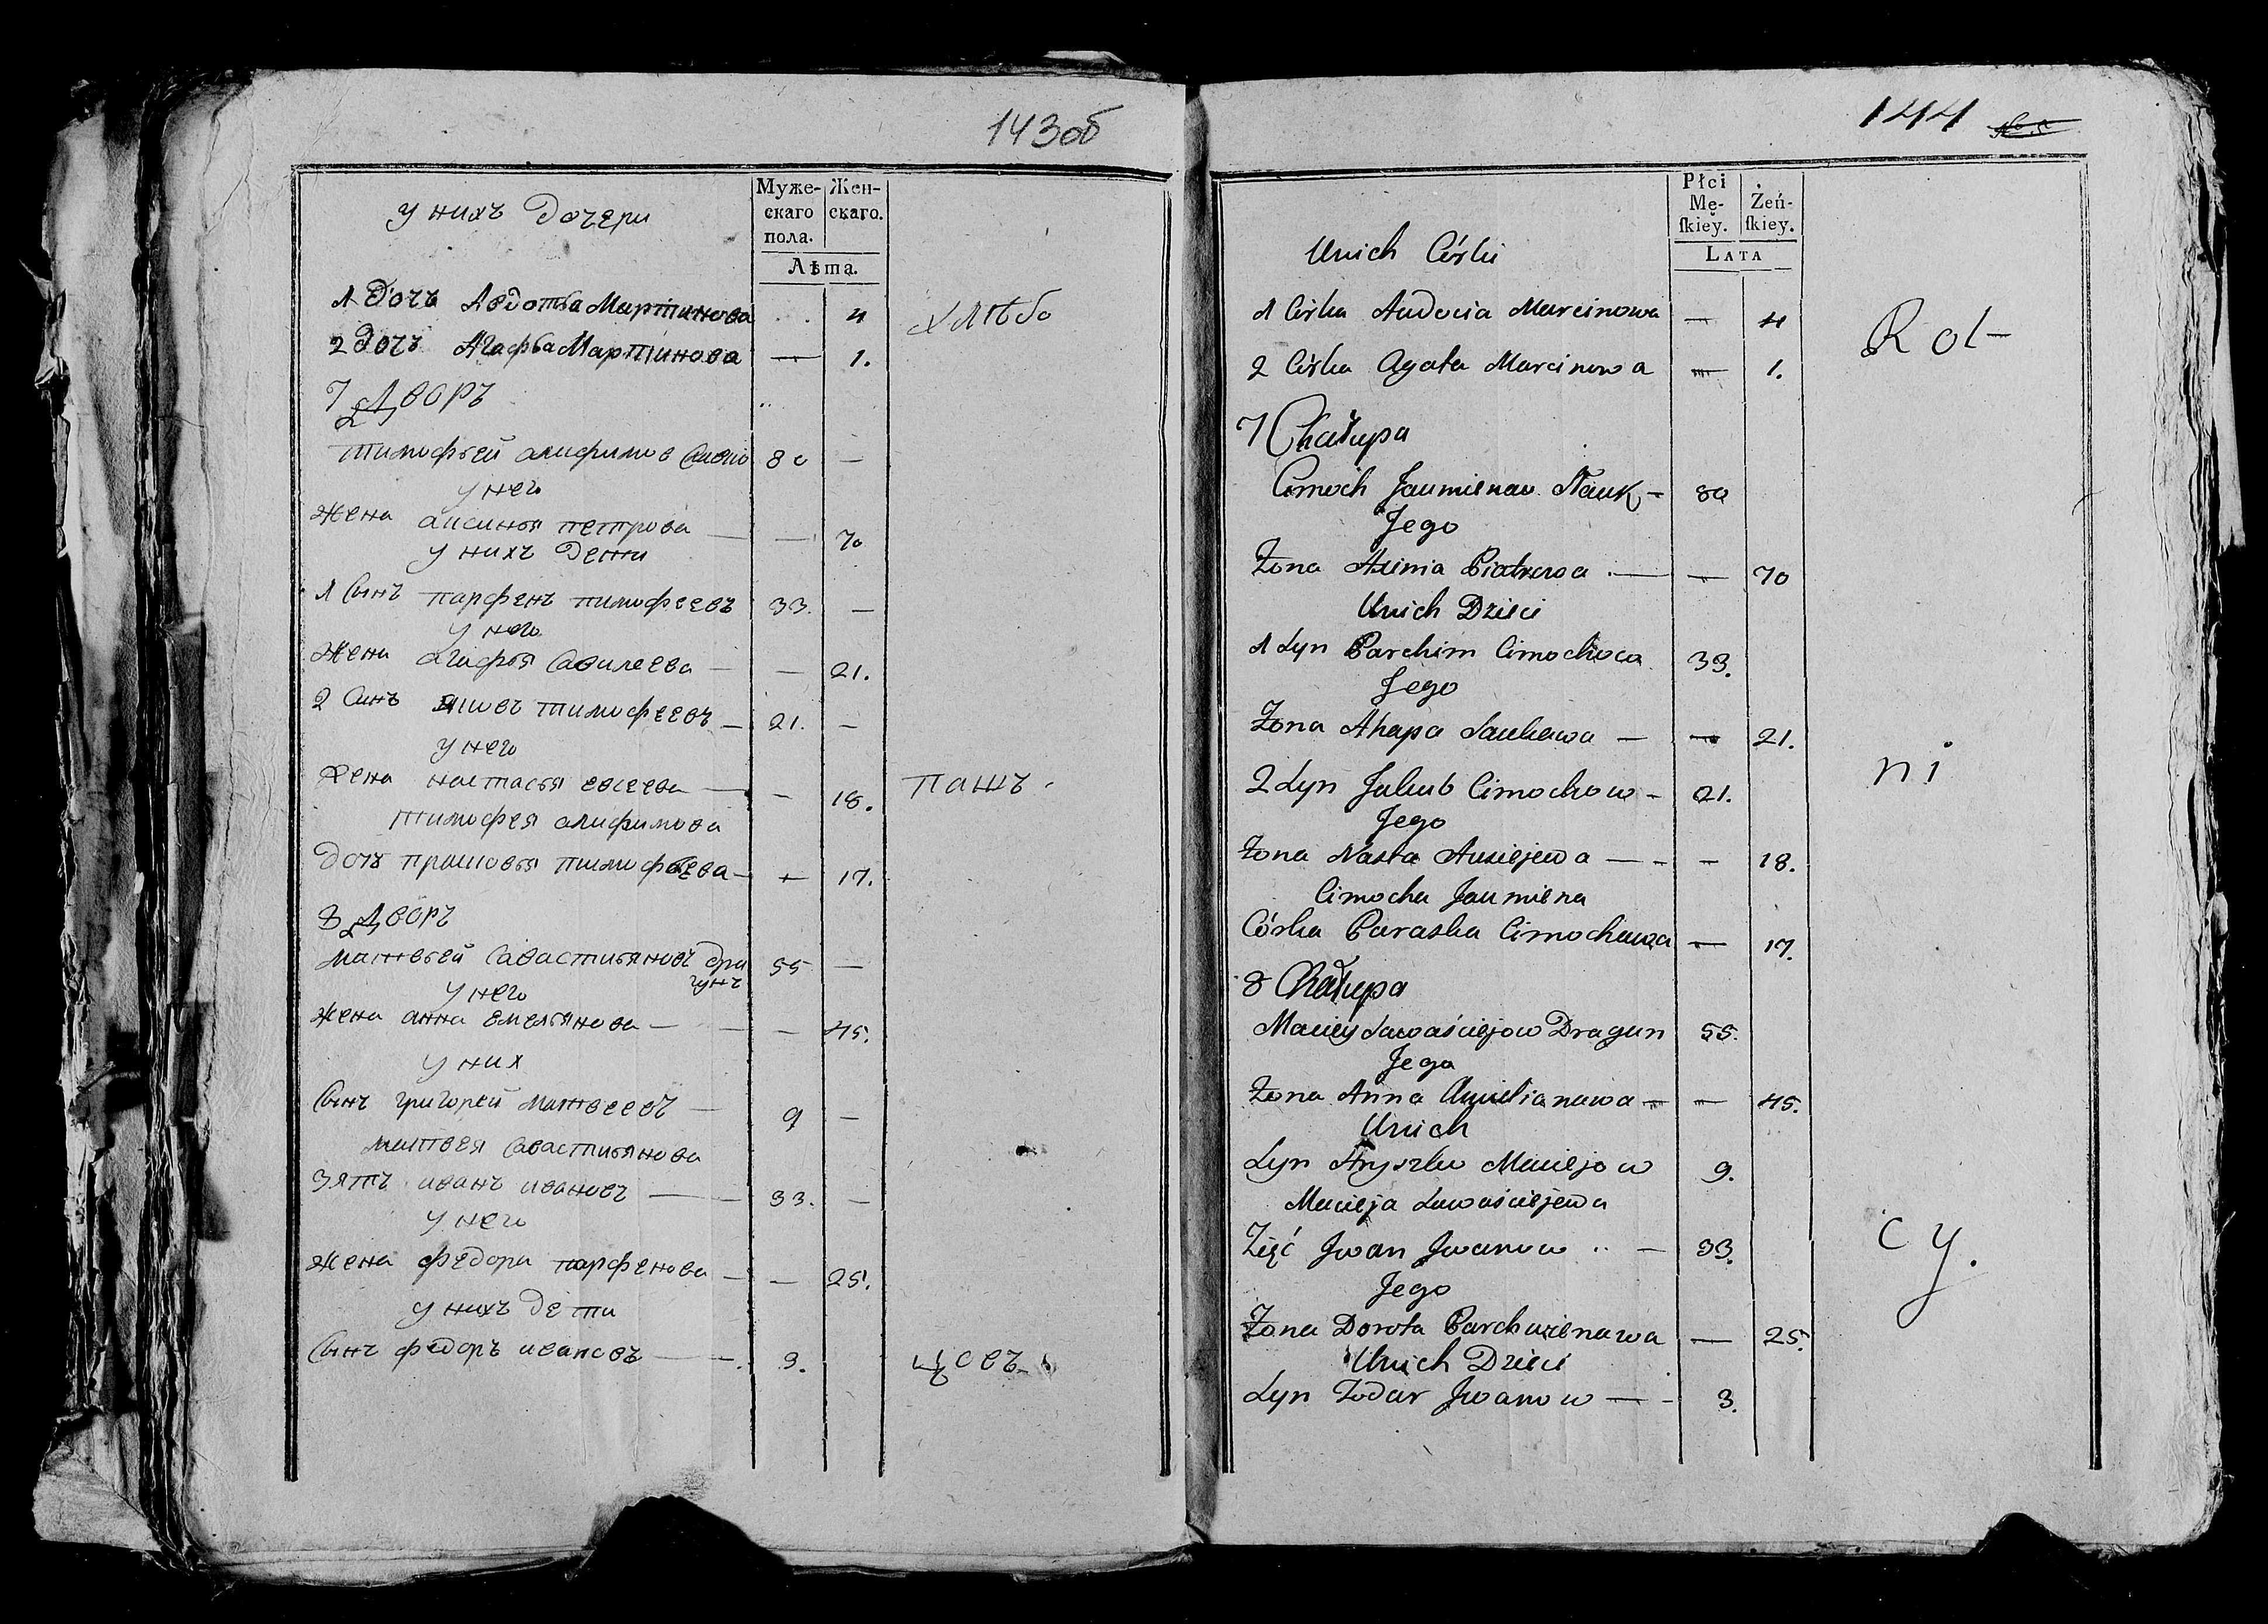 143об
Муже-
скаго
пола.
Жен-
скаго.
Лѣта.
у нихъ дочери
1 дочь Авдотья Мартинова . . 4
хлѣбо
2 дочь Агафья Мартинова — 1.
7 Дворъ
тимофѣй алифимов 80 —
у него
жена аксинья петрова — — 70
у нихъ дети
1 Сынъ парфенъ тимофеевъ 33. —
у него
жена агафья Савилеева — — 21.
2 Синъ яковъ тимофеевъ — 21. —
у него
жена настасья евсеева — — 18.
пашъ
тимофея алифимова
дочь прасковья тимофѣева — — 17.
8 Дворъ
матвѣй Савастиянов дра 55 —
гунъ
у него
жена анна емельянова — — 45.
у них
Сынъ григорей матвеевъ — 9 —
матвея Савастиянова
зять иванъ ивановъ — 33. —
у него
жена федора парфенова — — 25.
у нихъ дети
Сынъ федоръ ивановъ — 3.
цовъ
144
Płci
Mę-
skiey.
Żeń-
skiey.
LATA
Unich Córki
1 Córka Audocia Marcinowa — 4
Rol-
2 Córka Agata Marcinowa — 1.
7 Chałupa
Cimoch Jaumienau 80
Jego
Żona Axinia Piatrowa — — 70
Unich Dzieci
1 Syn Parchim Cimochowa 33.
Jego
Żona Ahapa Sauleewa — — 21.
2 Syn Jakub Cimochow - 21.
ni
Jego
Żona Nasta Ausiejewa — - - 18.
Cimocha Jaumiena
Córka Paraska Cimochawa — 17.
8 Chałupa
Maciey Sawaściejow Dragun 55.
Jego
Żona Anna Amielianawa — — 45.
Unich
Syn Hryszko Maciejow 9.
Macieja Sawaściejewa
Zięć Jwan Jwanow .. — 33.
cy.
Jego
Żona Dorota Parchwienawa — 25.
Unich Dzieci
Syn Fodar Jwanow — - 3.